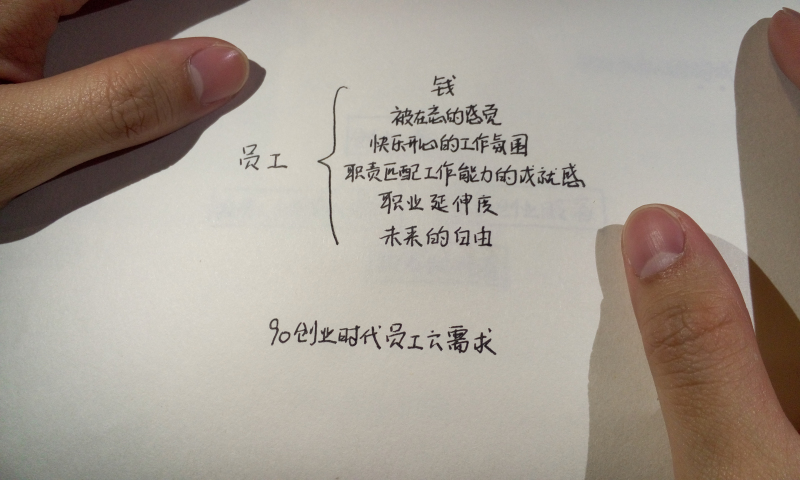 员工
钱
被在意的感觉
快乐开心的工作氛围
职责匹配工作能力的成就感
职业延伸度
未来的自由
90创业时代员工云需求